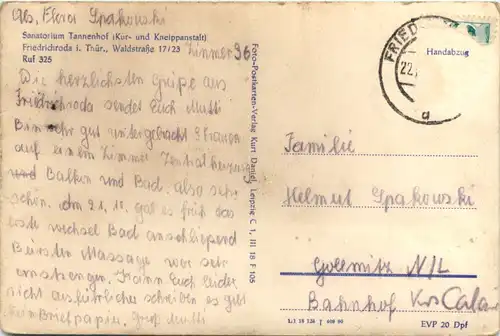 Abs. Flora Spakowski
Sanatorium Tannenhof (Kur- und Kneippanstalt)
Friedrichroda i. Thür., Waldstraße 17/23
Ruf 325
Zimmer 36
Die herzlichsten Grüße aus
Friedrichroda sendet Euch Mutti
Bin sehr gut untergebracht 3 Frauen
auf einem Zimmer Zentralheizung
und Balkon und Bad. also sehr
schön. Am 21.10. gab es früh das
erste wechsel Bad anschließend
Bürsten Massage war sehr
anstrengen. Kann Euch leider
nicht ausführlicher schreiben es gibt
kein Briefpapier. Gruß Mutti
Foto-Postkarten-Verlag Kurt Daniel, Leipzig C 1, III 18 F 105
FRIED
22.
a
Handabzug
Familie
Helmut Spakowski
Gollmitz N/L
Bahnhof Krs Calau
EVP 20 Dpf